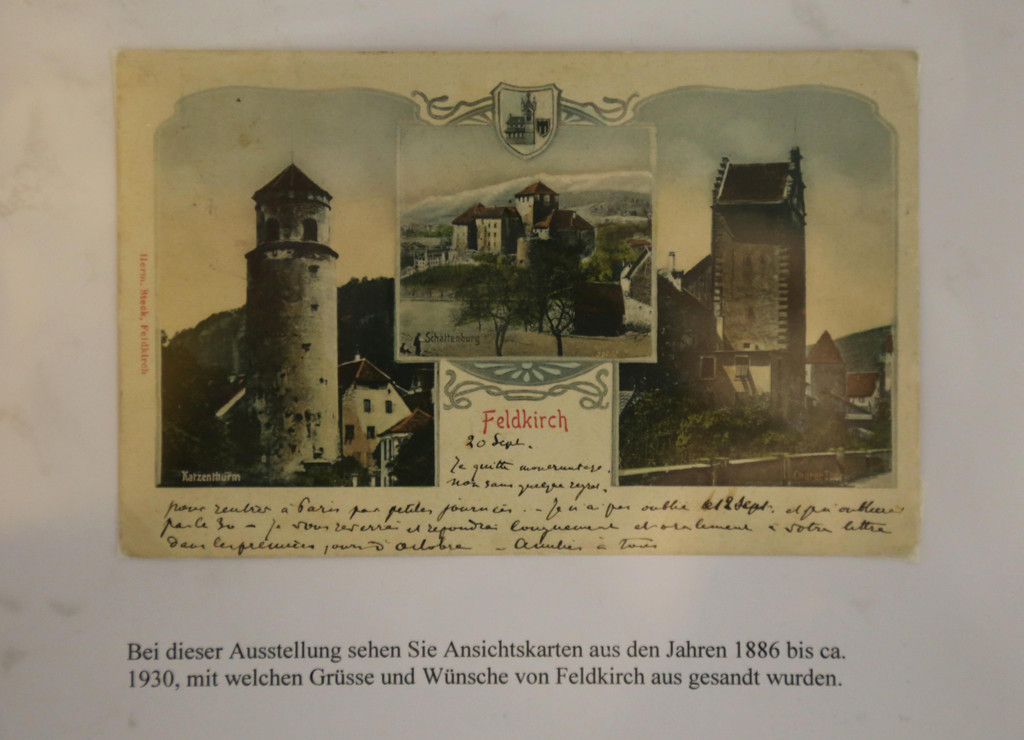 Herm. Steck, Feldkirch
Schattenburg
Feldkirch
Katzenthurm
20 Sept.
Je quitte
non sans quelque regret.
pour rentrer à Paris par petites journées. - Je n'ai pas oublié le 12 Sept. et
pas le 30 - Je vous reverrai et répondrai longuement et oralement à votre lettre
dans les premiers jours d'octobre - Amitiés à tous
Bei dieser Ausstellung sehen Sie Ansichtskarten aus den Jahren 1886 bis ca.
1930, mit welchen Grüsse und Wünsche von Feldkirch aus gesandt wurden.